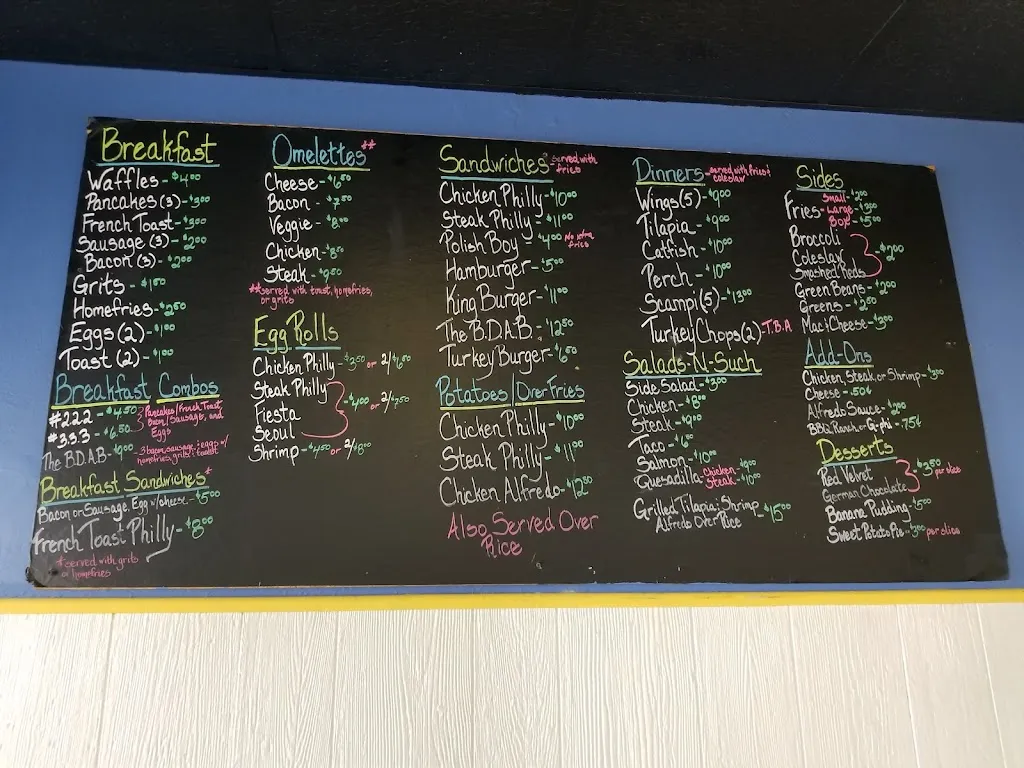 Breakfast
Waffles - $4.00
Pancakes (3) - $3.00
French Toast - $3.00
Sausage (3) - $2.00
Bacon (3) - $2.00
Grits - $1.50
Homefries - $2.50
Eggs (2) - $1.00
Toast (2) - $1.00
Breakfast Combos
#222 - $4.50
#333 - $6.50
Pancakes/French Toast,
Bacon/Sausage, and
Eggs
The B.D.A.B - $9.00
3 bacon, sausage, : eggs w/
homefries, grits : toast
Breakfast Sandwiches*
Bacon or Sausage, Egg w/cheese - $5.00
French Toast Philly - $8.00
*served with grits
or homefries
Omelettes**
Cheese - $6.50
Bacon - $7.50
Veggie - $8.00
Chicken - $8.50
Steak - $9.50
**served with toast, homefries,
or grits
Egg Rolls
Chicken Philly - $3.50 or 2/$6.50
Steak Philly
Fiesta
Seoul
- $4.00 or 2/$7.50
Shrimp - $4.50 or 2/$8.00
Sandwiches served with
fries
Chicken Philly - $10.00
Steak Philly - $11.00
Polish Boy - $4.00 No extra
fries
Hamburger - $5.00
King Burger - $11.00
The B.D.A.B. - $12.50
Turkey Burger - $6.50
Potatoes/Over Fries
Chicken Philly - $10.00
Steak Philly - $11.00
Chicken Alfredo - $12.50
Also Served Over
Rice
Dinners served with fries &
coleslaw
Wings (5) - $9.00
Tilapia - $9.00
Catfish - $10.00
Perch - $10.00
Scampi (5) - $13.00
Turkey Chops (2) - T.B.A
Salads-N-Such
Side Salad - $3.00
Chicken - $8.00
Steak - $9.00
Taco - $6.00
Salmon - $10.00
Quesadilla Chicken - $9.00
Steak - $10.00
Grilled Tilapia : Shrimp
Alfredo Over Rice - $15.00
Sides
Fries - Small - $2.00
Large - $3.50
Box - $5.00
Broccoli
Coleslaw
Smashed Reds
- $2.00
Green Beans - $2.00
Greens - $2.50
Mac : Cheese - $3.00
Add-Ons
Chicken, Steak, or Shrimp - $3.00
Cheese - .50¢
Alfredo Sauce - $2.00
BBQ, Ranch, or Q-phi - .75¢
Desserts
Red Velvet
German Chocolate
- $3.50 per slice
Banana Pudding - $5.00
Sweet Potato Pie - $3.00 per slice